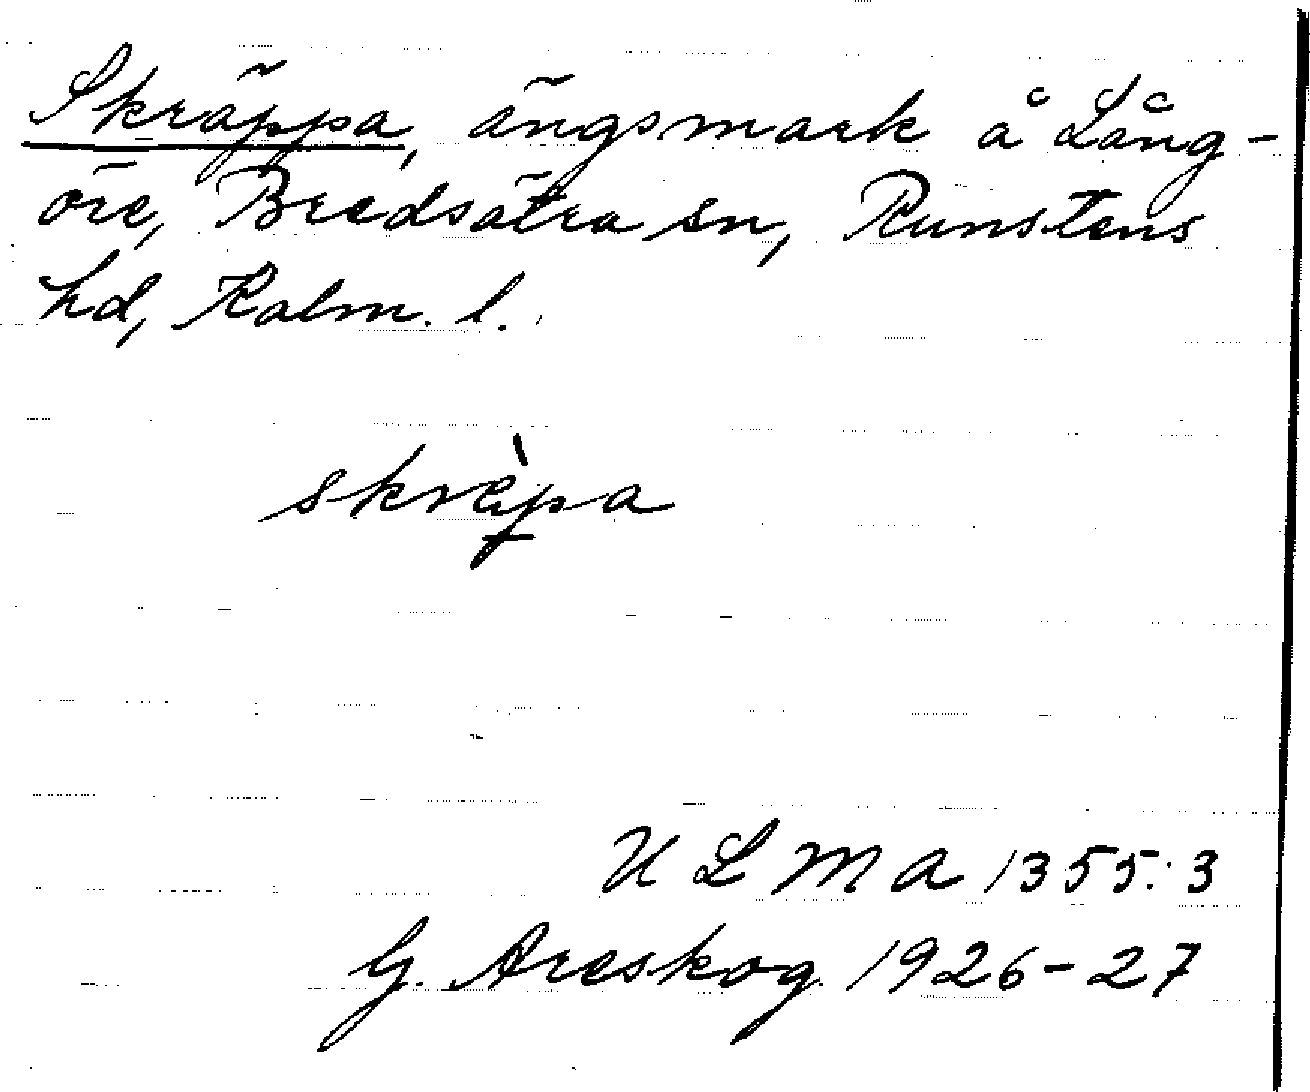 Skräppa, ängsmark å Lång-
öre, Bredsätra sn, Runstens
hd, Kalm. l.
skrèpa
U L M A 1355:3
G. Areskog 1926-27